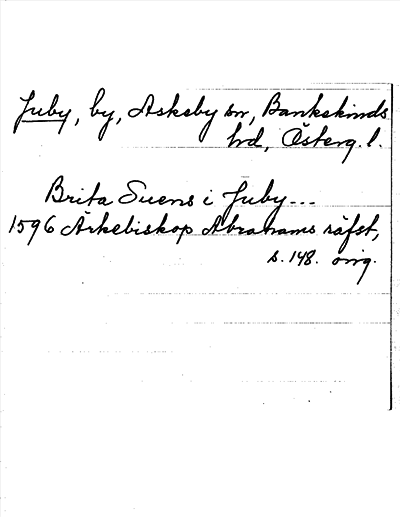 Juby, by, Askeby sn, Bankekinds
hd, Österg. l.
Brita Suens i Juby...
1596 Ärkebiskop Abrahams räfst,
s. 148. orig.